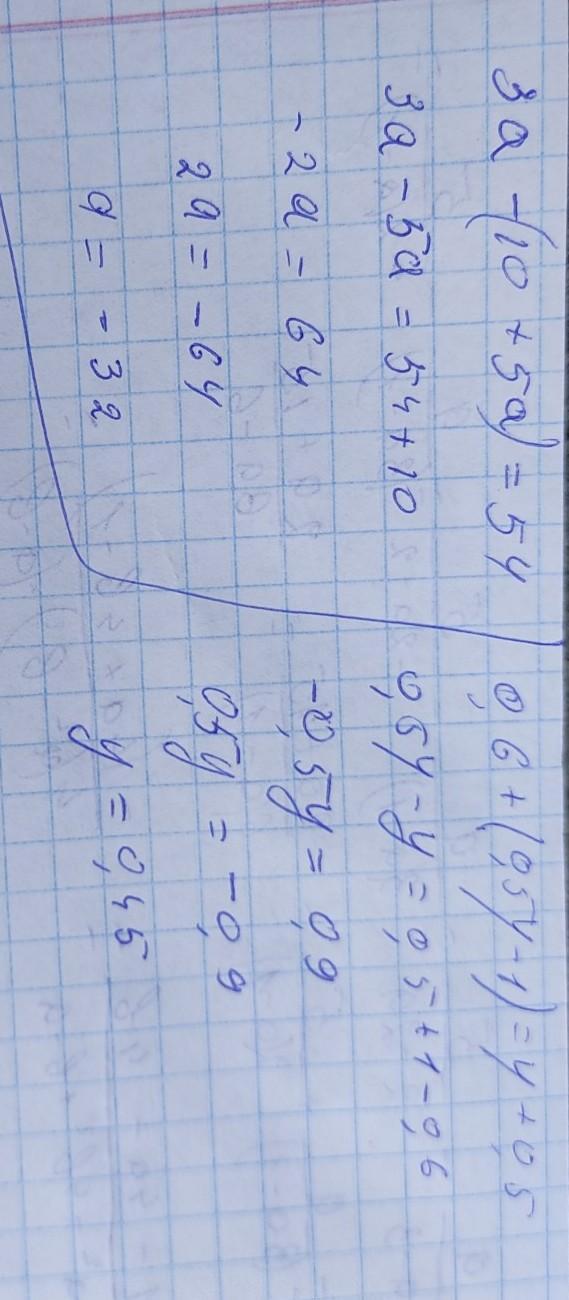 3a - (10 + 5a) = 54
3a - 5a = 54 + 10
- 2a = 64
2a = - 64
a = - 32
0,6 + (0,5y - 1) = y + 0,5
0,5y - y = 0,5 + 1 - 0,6
- 0,5y = 0,9
0,5y = - 0,9
y = 0,45